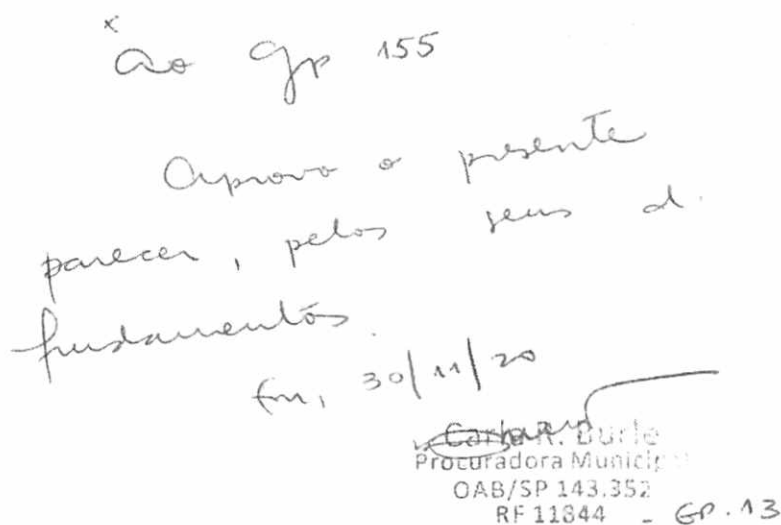 Ao Gp 155
Aprovo o presente
parecer, pelos seus d.
fundamentos.
Em, 30/11/20
Carla R. Burle
Procuradora Municipal
OAB/SP 143.352
RF 11844 - GP. 13